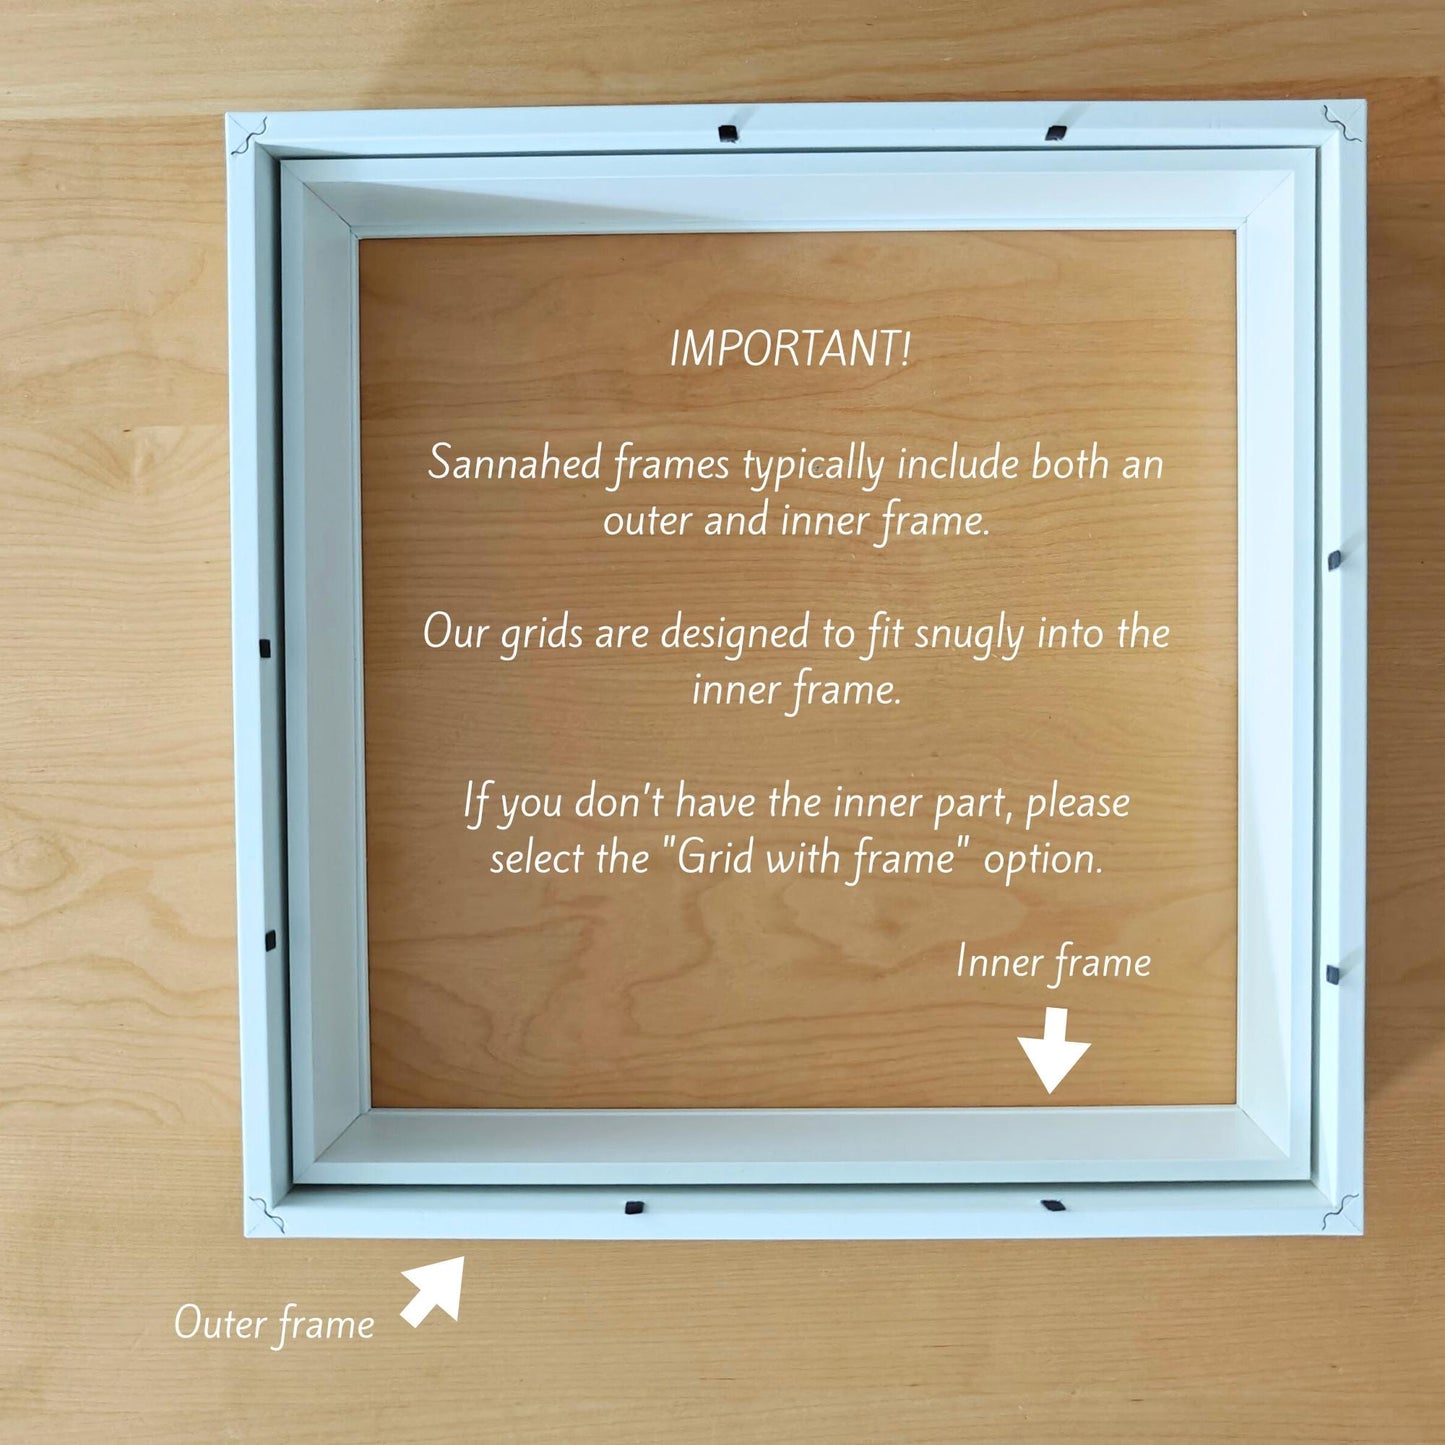 IMPORTANT!
Sannahed frames typically include both an
outer and inner frame.
Our grids are designed to fit snugly into the
inner frame.
If you don't have the inner part, please
select the "Grid with frame" option.
Inner frame
Outer frame